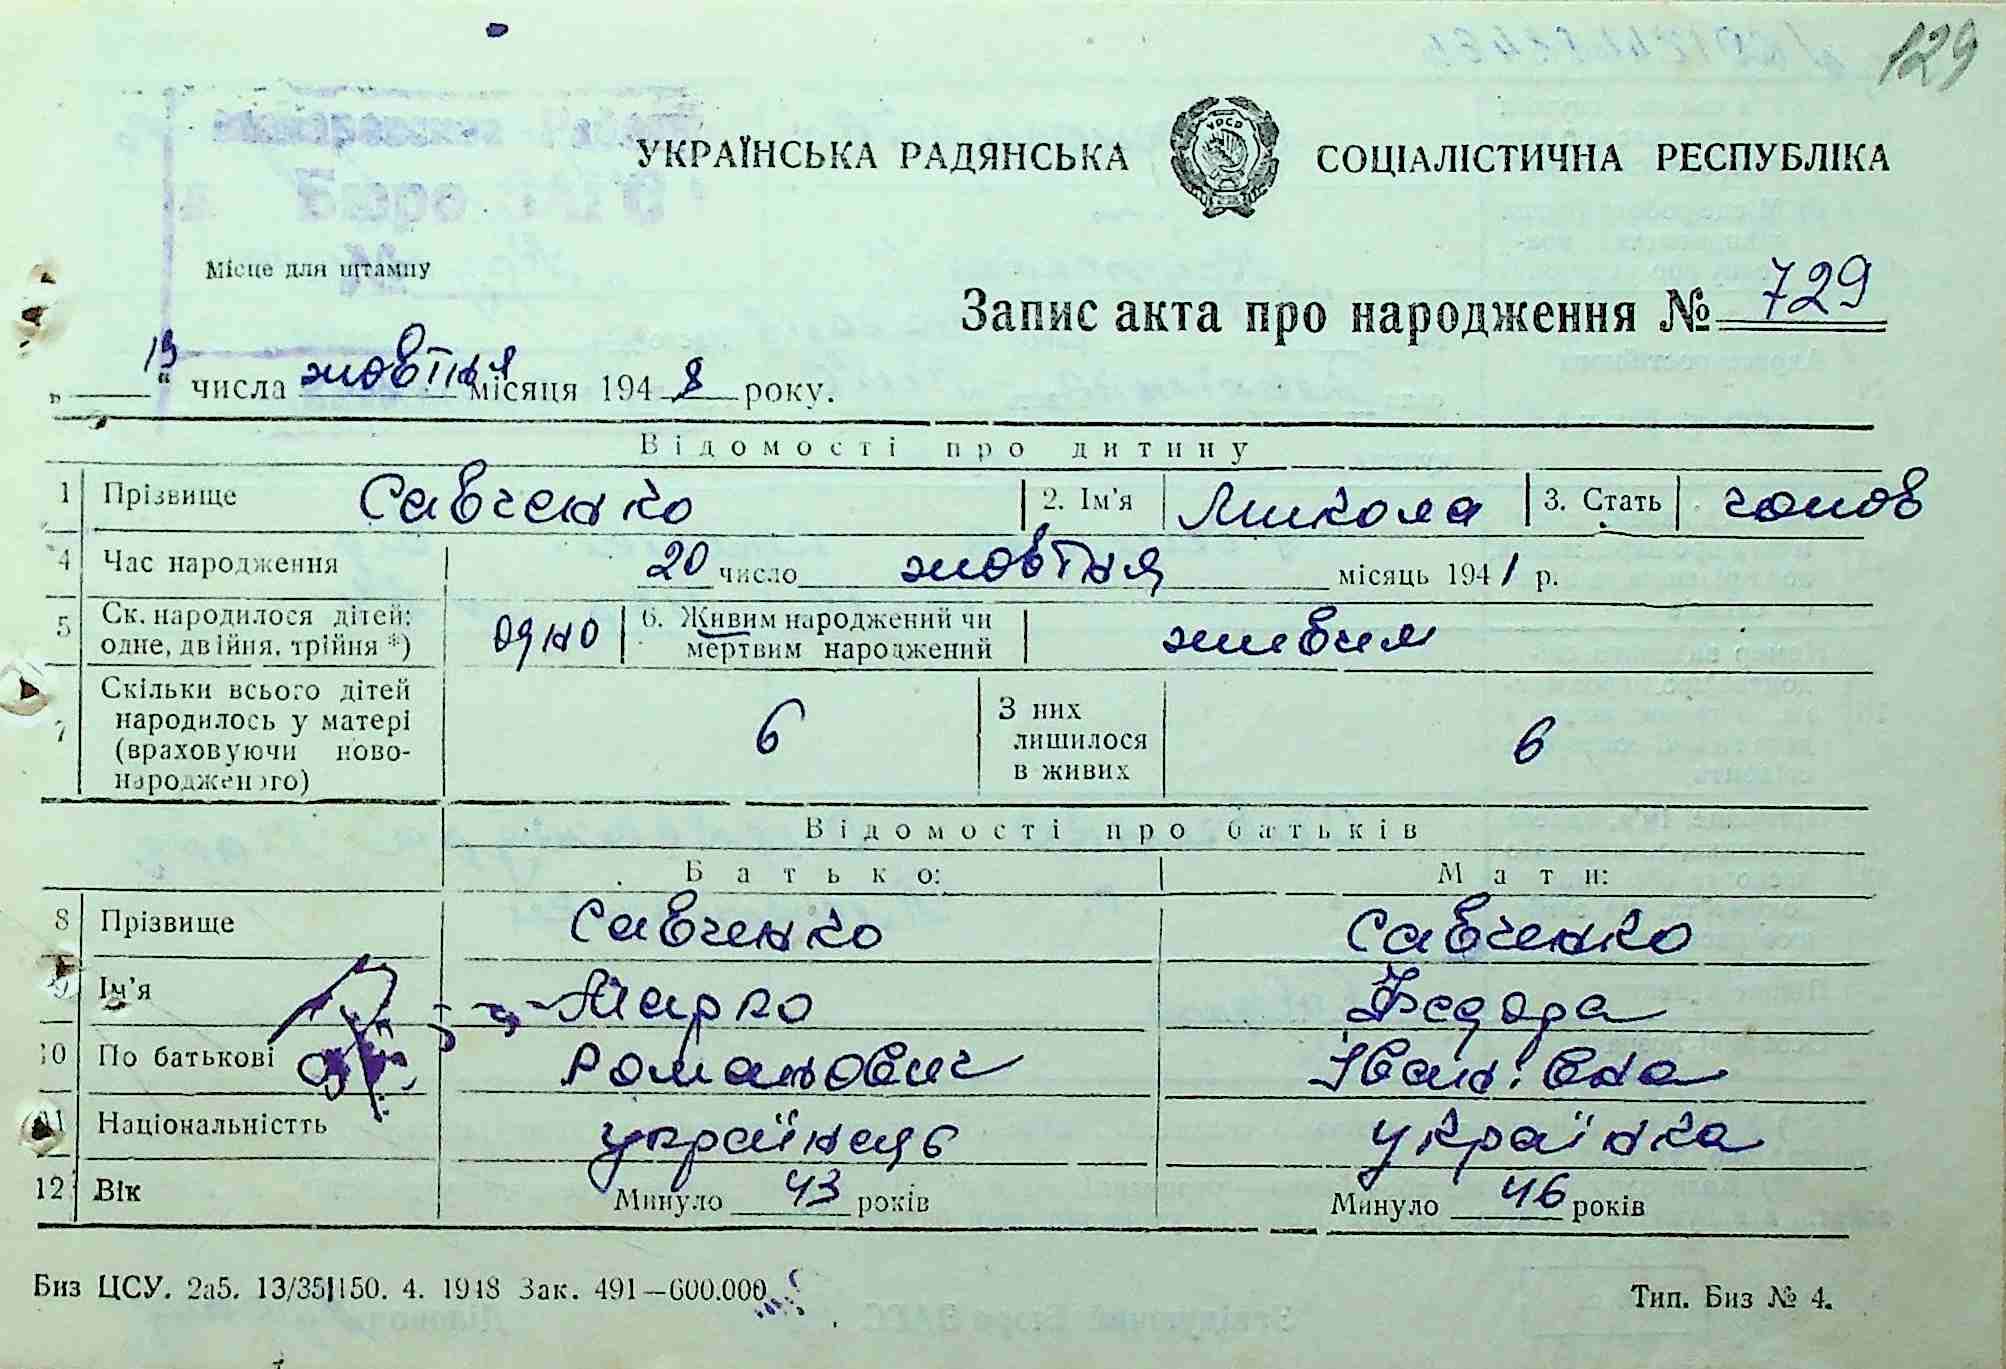 129
УКРАЇНСЬКА РАДЯНСЬКА СОЦІАЛІСТИЧНА РЕСПУБЛІКА
УРСР
Місце для штампу
Запис акта про народження № 729
„ 19 “ числа жовтня місяця 1948 року.
Відомості про дитину
1 Прізвище Савченко 2. Ім'я Микола 3. Стать чолов
4 Час народження 20 число жовтня місяць 1941 р.
5 Ск. народилося дітей: одне, двійня, трійня *) одно 6. Живим народжений чи мертвим народжений живим
7 Скільки всього дітей народилось у матері (враховуючи ново-народженого) 6 З них лишилося в живих 6
Відомості про батьків
Батько: Мати:
8 Прізвище Савченко Савченко
9 Ім'я Марко Федора
10 По батькові Романович Іванівна
11 Національністть українець українка
12 Вік Минуло 43 років Минуло 46 років
Биз ЦСУ. 2а5. 13/35|150. 4. 1948 Зак. 491—600.000 Тип. Биз № 4.